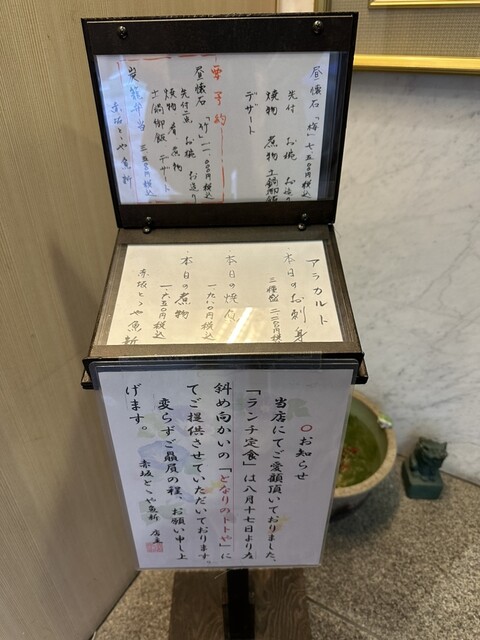 昼懐石「梅」七、五〇〇円税込
先付 お椀 お造り
焼物 煮物 土鍋御飯
デザート
要予約
昼懐石「竹」一一、〇〇〇円税込
先付二点 お椀 お造り
焼物 肴 煮物
土鍋御飯 デザート
赤坂とゝや魚新
アラカルト
・本日のお刺身
三種盛 二、二〇〇円税込
・本日の焼魚
・本日の煮物
一、九五〇円税込
赤坂とゝや魚新
〇お知らせ
当店にてご愛顧頂いておりました、
「ランチ定食」は八月十七日より左
斜め向かいの「となりのトトや」に
てご提供させていただいております。
変らずご贔屓の程、お願い申し上
げます。
赤坂とゝや魚新 店主